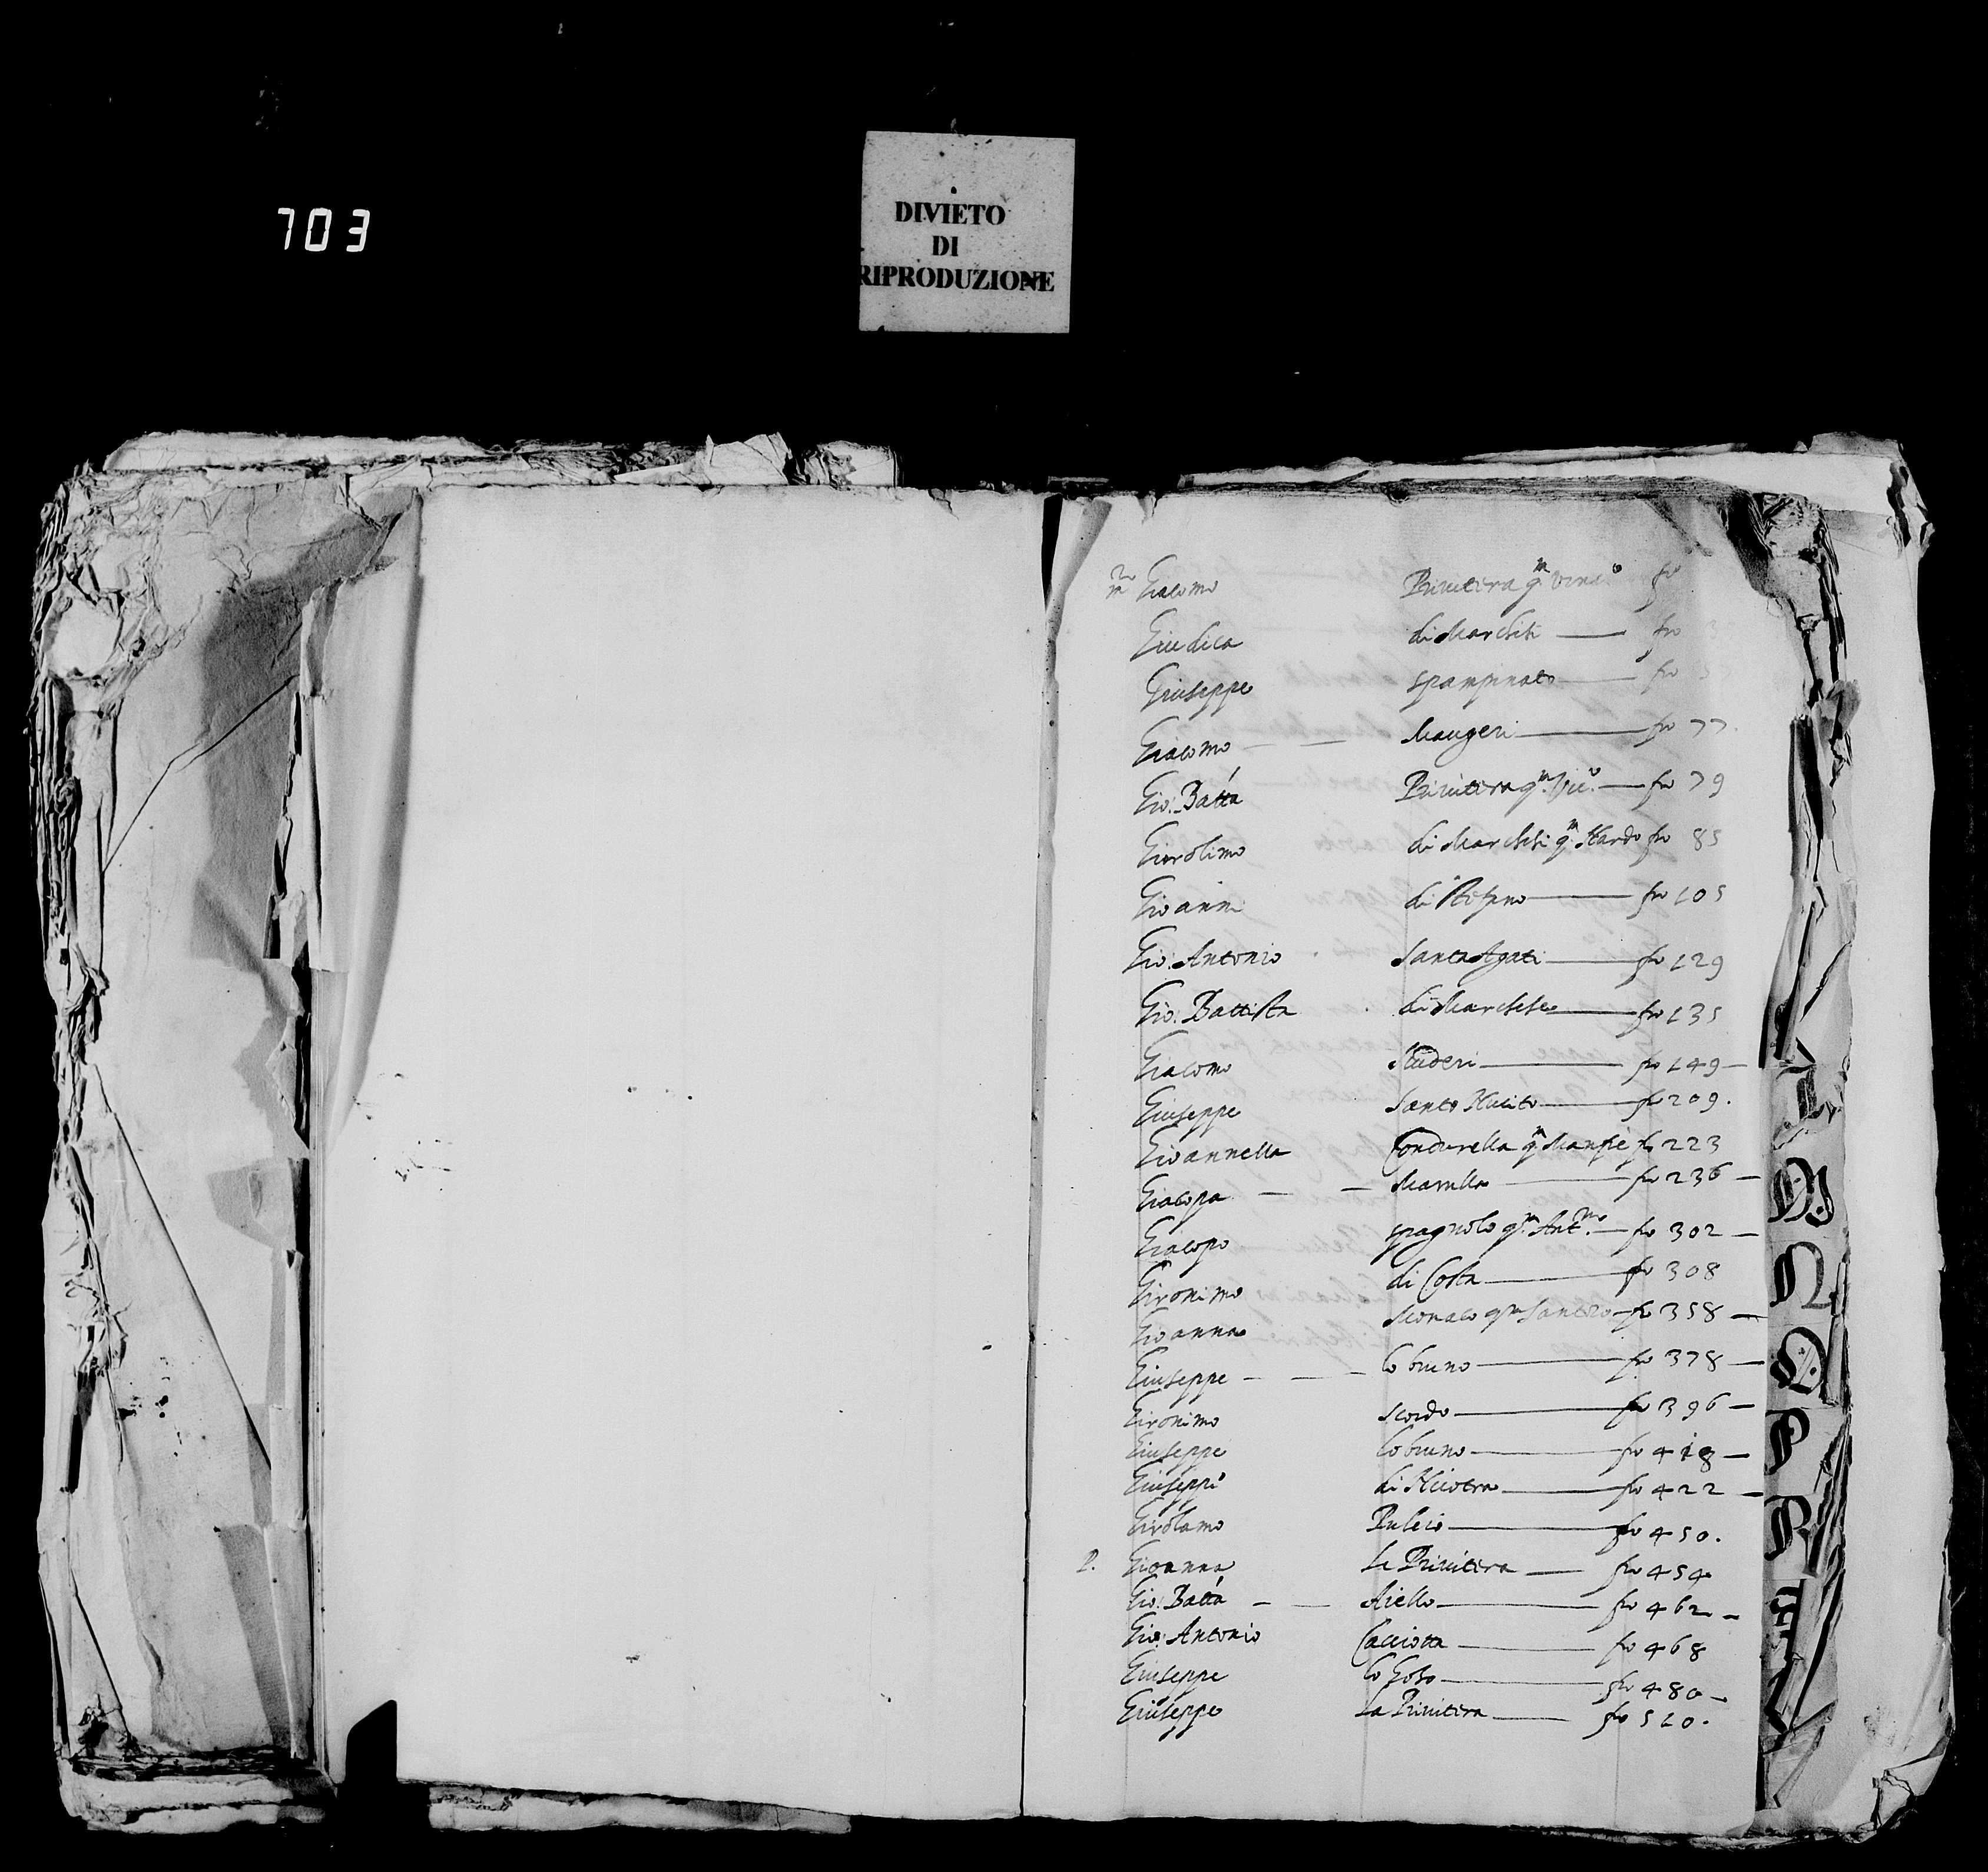 703
DIVIETO
DI
RIPRODUZIONE
Giacomo Privitera qm Vinc.o fo
Giudica di Marchisi — fo 3
Giuseppe Spampinato — fo
Giacomo — — Maugeri — fo 77.
Gio: Batta Privitera qm — fo 79
Gierolimo di Marchisi qm Nardo fo 85
Gioanni di Stefano — fo 105
Gio: Antonio SantaAgati — fo 129
Gio: Battista di Marchese — fo 135
Giacomo Studeri — fo 149 —
Giuseppe Santo — fo 209.
Gioannella Condurella qm Manfrè fo 223
Giacopa — — Marulla — fo 236 —
Giacopo spagnolo qm Ant.no — fo 302 —
Gironimo di Costa — fo 308
Gioanna Monaco qm Santoro — fo 358 —
Giuseppe — — — lo bruno — fo 378 —
Gironimo scordo — fo 396 —
Giuseppe lo bruno — fo 418 —
Giuseppi di — fo 422 —
Girolamo Puleio — fo 450.
P. Gioanna La Privitera — fo 454
Gio: Batta — — Aiello — fo 462 —
Gio: Antonio Cacciotta — fo 468
Giuseppe lo — fo 480 —
Giuseppe La Privitera — fo 510.
L
M
N
O
P
R